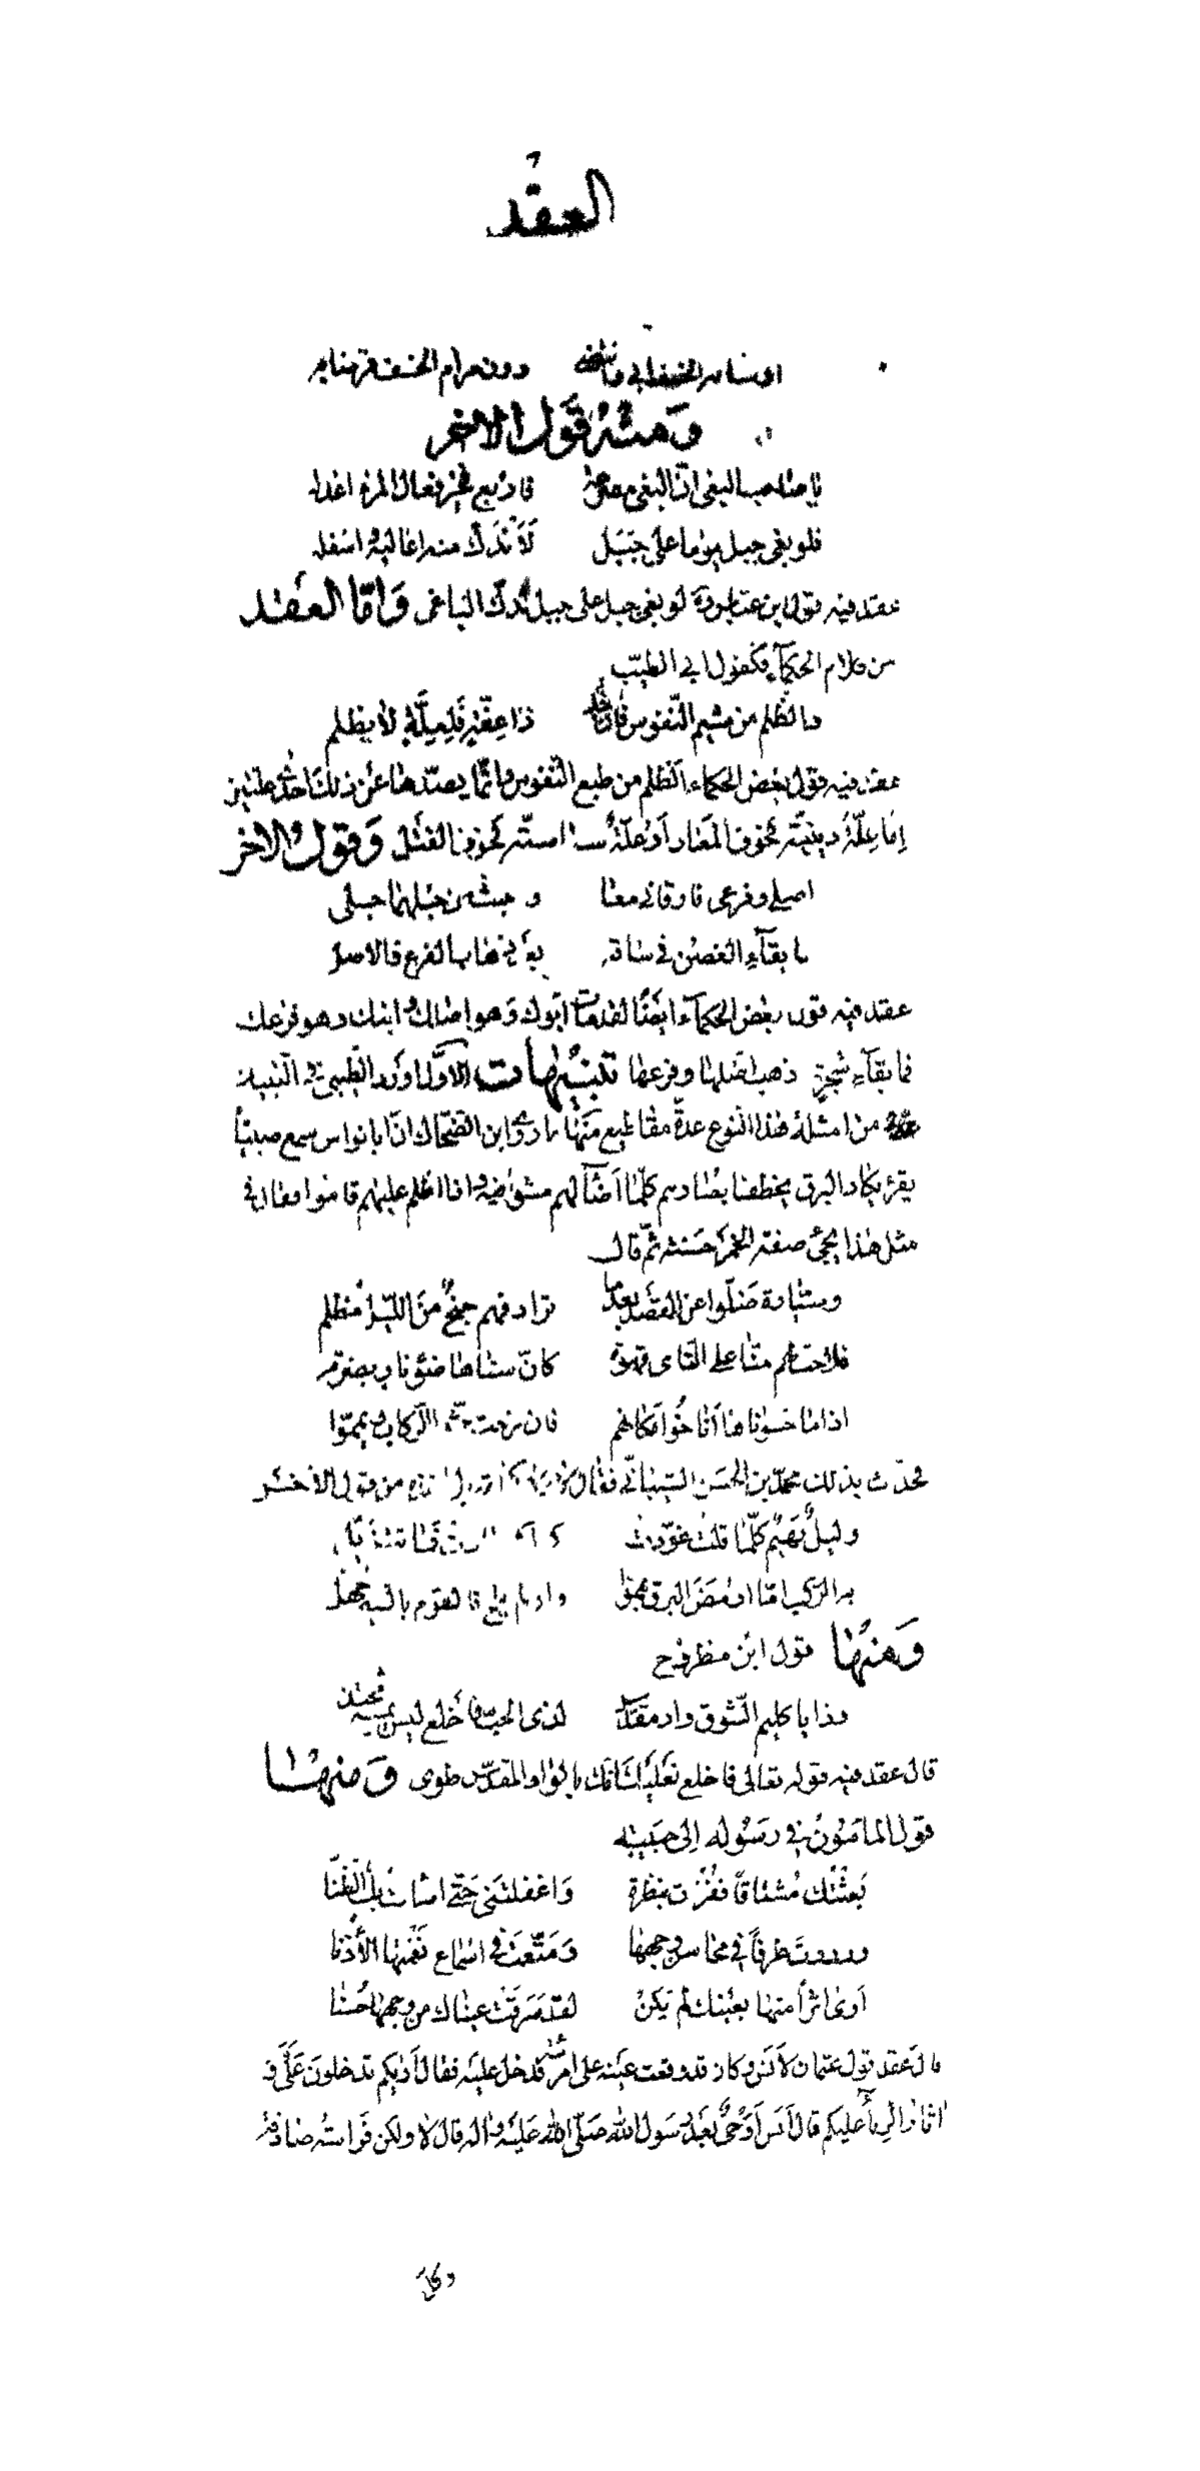 العقد
دون مرام الخسف قرضابه
ومنه قول الاخر
يا صاحب البغى ان البغى مصرعة فاربع فخير فعال المرء اعدله
فلو بغى جبل يوما على جبل لاندك منه اعاليه واسفله
عقد فيه قول ابن عباس لو بغى جبل على جبل لدك الباغى واما العقد
من كلام الحكماء فكقول ابى الطيب
والظلم من شيم النفوس فان تجد ذا عفة فلعلة لا يظلم
عقد فيه قول بعض الحكماء الظلم من طبع النفوس وانما يصدها عن ذلك احدى علتين
اما علة دينية كخوف المعاد او علة كخوف القتل وقول الاخر
اصلى وفرعى فارقانى معا و حبلهما حبلى
ما بقاء الغصن فى ساقه بعد ذهاب الفرع والاصل
عقد فيه قول بعض الحكماء ايضا لقد مات ابوك وهو اصلك وابنك وهو فرعك
فما بقاء شجرة ذهب اصلها وفرعها تنبيهات الاول اورد الطيبى فى التبيان
من امثلة هذا النوع عدة مقاطيع منها ما روى ابن الضحاك ان ابا نواس سمع صبيا
يقرء يكاد البرق يخطف ابصارهم كلما اضآء لهم مشوا فيه واذا اظلم عليهم قاموا فقال فى
مثل هذا يجئ صفة الخمر حسنة ثم قال
وسيارة ضلوا عن القصد بعدما ترادفهم جنح من الليل مظلم
فلاحت لهم منا على الناى قهوة كان سناها ضوء نار يضرم
اذا ما حسوناها اناخوا مكانهم فان مزجت الركاب ويمموا
فحدث بذلك محمد بن الحسن الشيبانى فقال من قول الاخر
وليل بهيم كلما قلت غورت
به الركب اما اومض البرق يمموا وان لم يلح فالقوم بالسير جهل
ومنها قول ابن مطروح
لذى الحب فاخلع ليس يمسيه محتذى
قال عقد فيه قوله تعالى فاخلع نعليك انك بالواد المقدس طوى ومنها
قول المامون فى رسوله الى حبيبه
بعثتك مشتاقا ففزت بنظرة واغفلتنى حتى اسات بك الظنا
ورددت طرفا فى محاسن وجهها ومتعت فى اسماع نغمتها الاذنا
ارى اثرا منها بعينك لم يكن لقد سرقت عيناك من وجهها حسنا
قال عقد قول عثمان لانس وكان قد وقعت عينه على امراة فدخل عليه فقال اريكم تدخلون على و
اثار الزنا عليكم قال انس اوحى بعد رسول الله صلى الله عليه واله قال لا ولكن فراسة صادقة
وكل